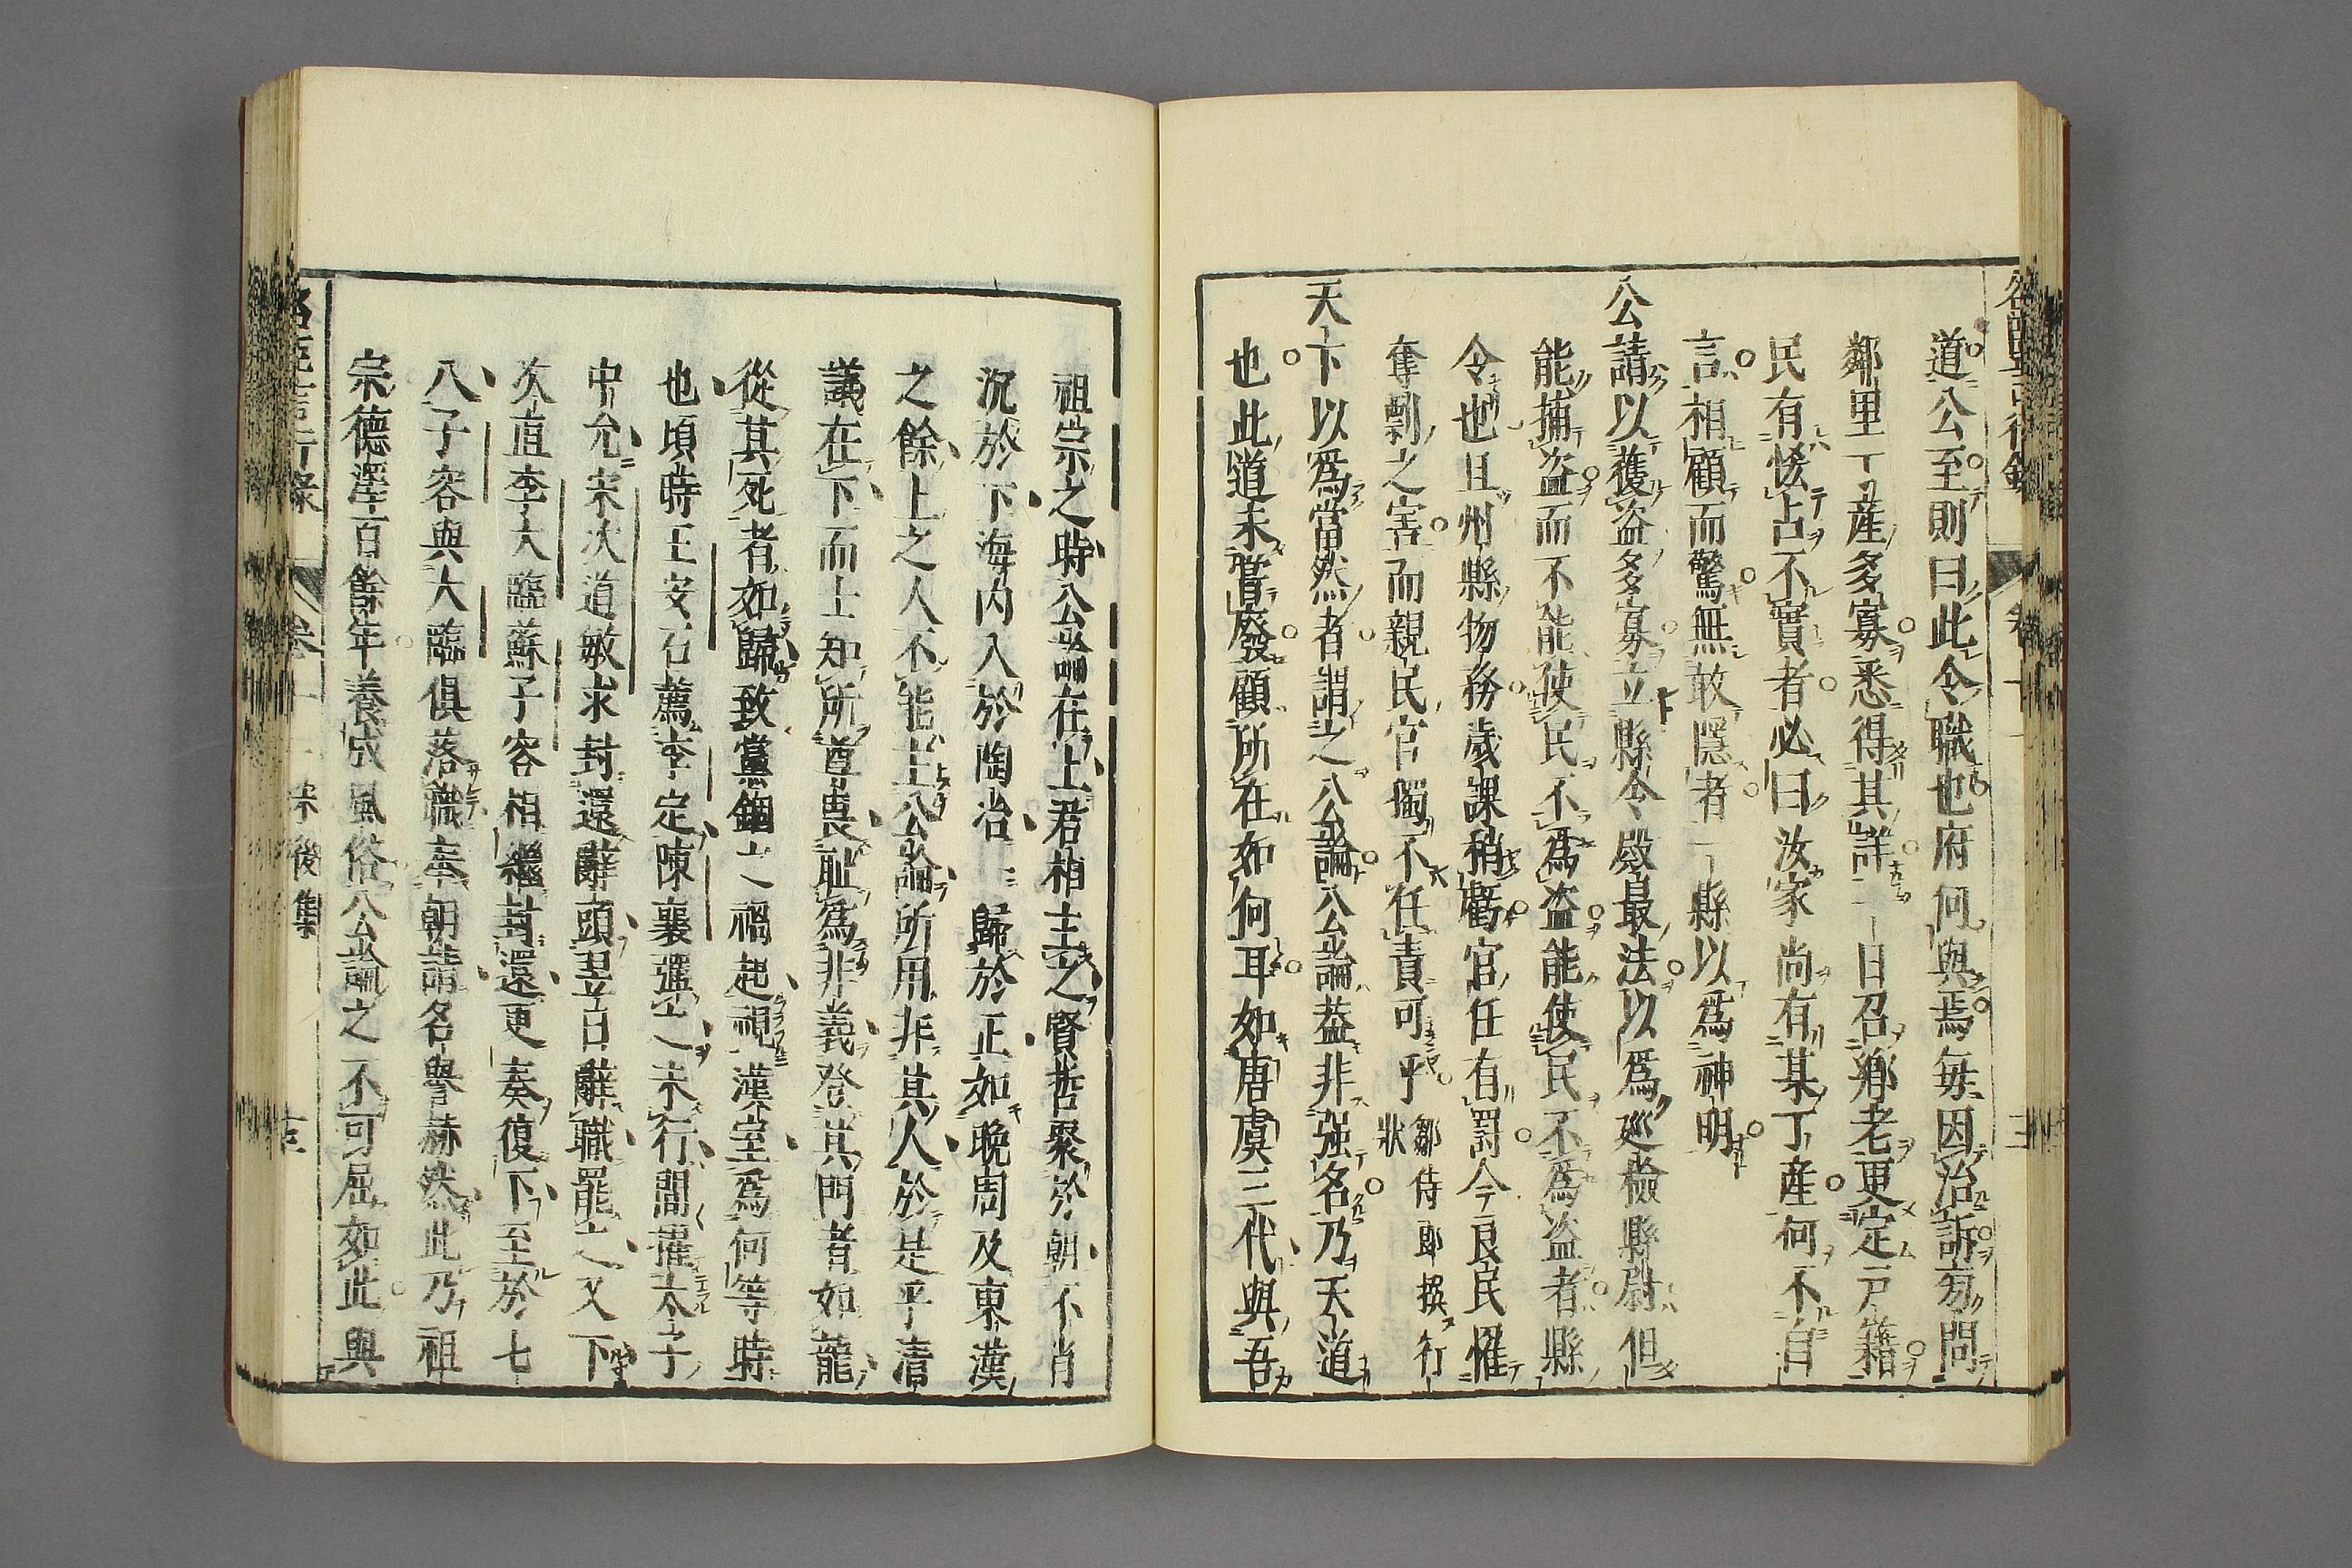 道公至則曰此令職也府何與焉每因治訴旁問
鄰里丁產多寡悉得其詳一日召鄉老更定戶籍
民有恡占不實者必曰汝家尚有某丁產何不自
言相顧而驚無敢隱者一縣以為神明
公請以獲盜多寡立縣令殿最法以爲巡檢縣尉但
能捕盜而不能使民不爲盜能使民不爲盜者縣
令也且州縣物務歲課稍虧官任有罰今良民罹
奪剽之害而親民官獨不任責可乎 鄒侍郎撰行狀
天下以爲當然者謂之公論公論蓋非强名乃天道
也此道未嘗廢顧所在如何耳如唐虞三代與吾
祖宗之時公論在上君相主之賢哲聚於朝不肖
沉於下海内入於陶冶一歸於正如晚周及東漢
之餘上之人不能主公論所用非其人於是乎清
議在下而士知所尊畏耻爲非義登其門者如龍
從其死者如歸致黨錮之禍起視漢室爲何等時
也頃時王安石薦李定陳襄彈之未行間擢太子
中允宋次道敏求封還辭頭翌日辭職罷之又下
次直李大臨蘇子容相繼封還更奏復下至於七
八子容與大臨俱落職奉朝請名譽赫然此乃祖
宗德澤百餘年養成風俗公論之不可屈如此與